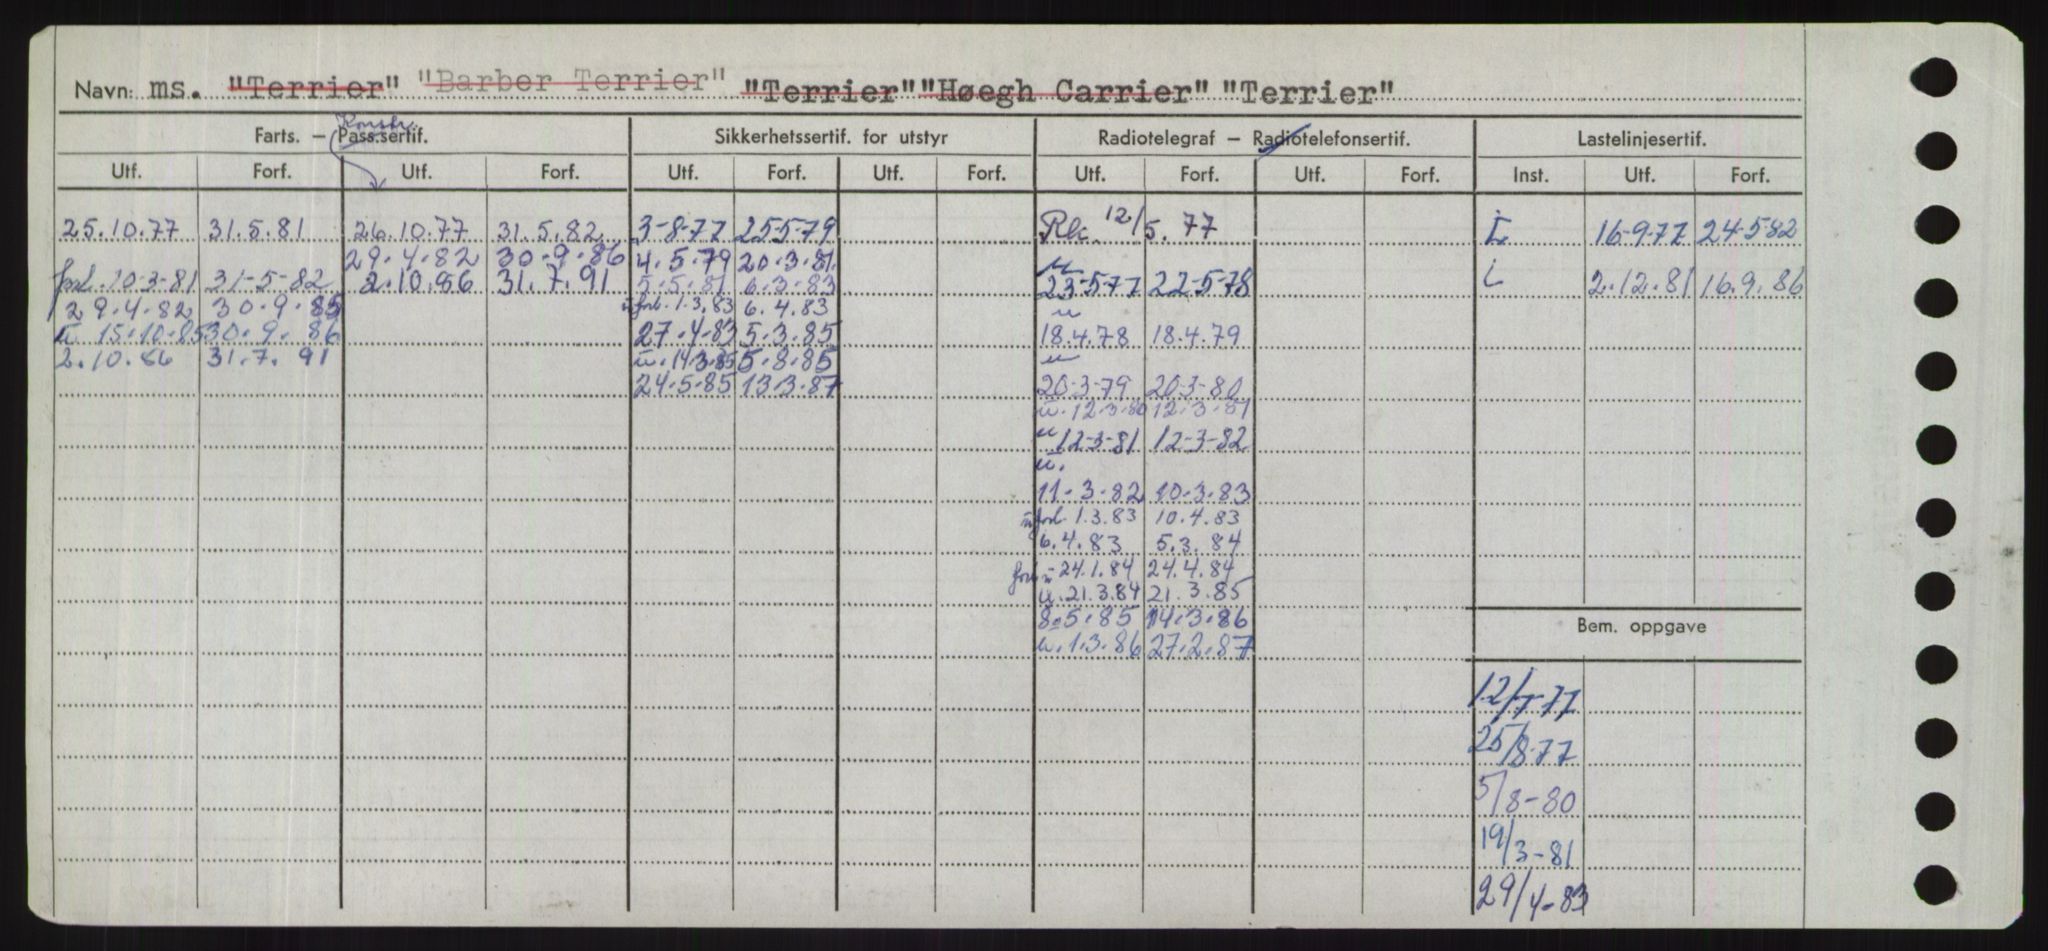 Navn: ms. "Terrier" "Barber Terrier" "Terrier" "Høegh Carrier" "Terrier"
Konstr.
Farts. — Pass.sertif. Sikkerhetssertif. for utstyr Radiotelegraf — Radiotelefonsertif. Lastelinjesertif.
Utf. Forf. Utf. Forf. Utf. Forf. Utf. Forf. Utf. Forf. Utf. Forf. Inst. Utf. Forf.
25.10.77 31.5.81 26.10.77 31.5.82 3-8-77 25-5-79 Rk. 12/5.77 L 16-9-77 24-5-82
29.4.82 30.9.86 4.5.79 20.3.81
forl. 10-3-81 31-5-82 2.10.86 31.7.91 5.5.81 6.3.83 u 23-5-77 22-5-78 L 2.12.81 16.9.86
29.4.82 30.9.85 u forl. 1.3.83 6.4.83
u 15.10.85 30.9.86 27.4.83 5.3.85 u 18.4.78 18.4.79
2.10.86 31.7.91 u. 14.3.85 5.8.85 u
24.5.85 13.3.87 20-3-79 20-3-80
u. 12.3.80 12.3.81
u 12-3-81 12-3-82
u.
11.3.82 10.3.83
u forl. 1.3.83 10.4.83
6.4.83 5.3.84
forl. u 24.1.84 24.4.84
u. 21.3.84 21.3.85
8.5.85 14.3.86
u. 1.3.86 27.2.87
Bem. oppgave
12/7-77
25/8-77
5/8-80
19/3-81
29/4-83